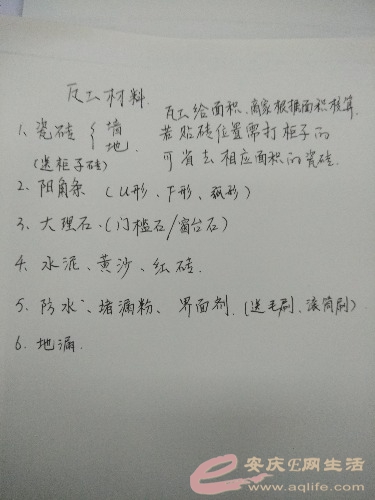 瓦工材料.
瓦工给面积、商家根据面积核算.
1、瓷砖 { 墙
地
若贴砖位置需打柜子的
(送柜子砖)
可省去相应面积的瓷砖.
2、阳角条 (U形、F形、弧形)
3、大理石、(门槛石/窗台石)
4、水泥、黄沙、红砖.
5、防水、堵漏粉、界面剂、(送毛刷、滚筒刷).
6、地漏.
安庆E网生活
www.aqlife.com